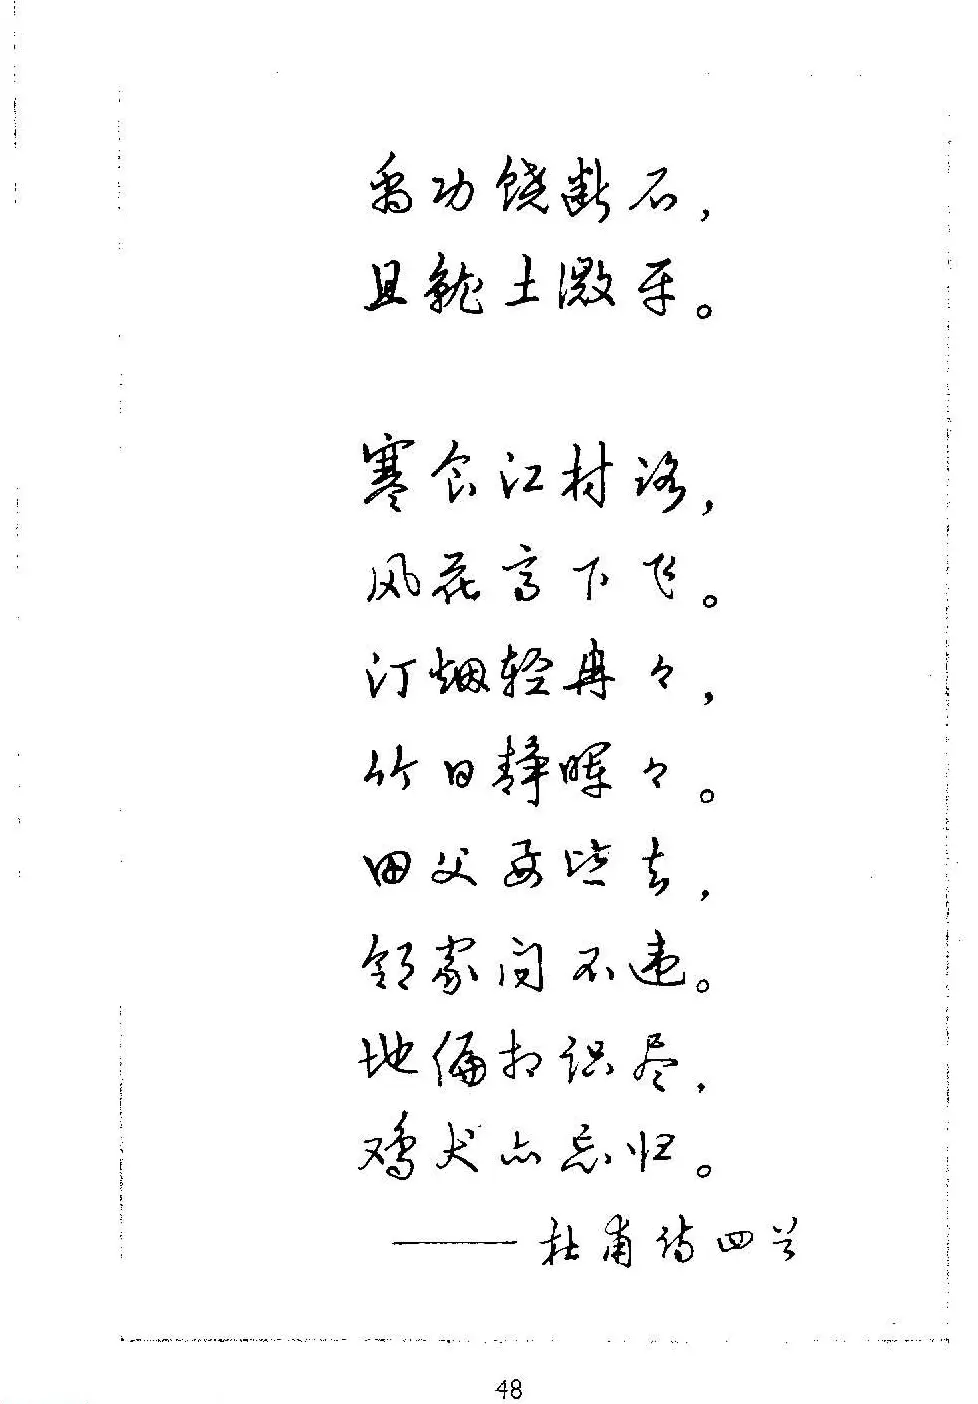 禹功饶断石，
且就土微平。
寒食江村路，
风花高下飞。
汀烟轻冉々，
竹日静晖々。
田父要皆去，
邻家问不违。
地偏相识尽，
鸡犬亦忘归。
——杜甫诗四首
48